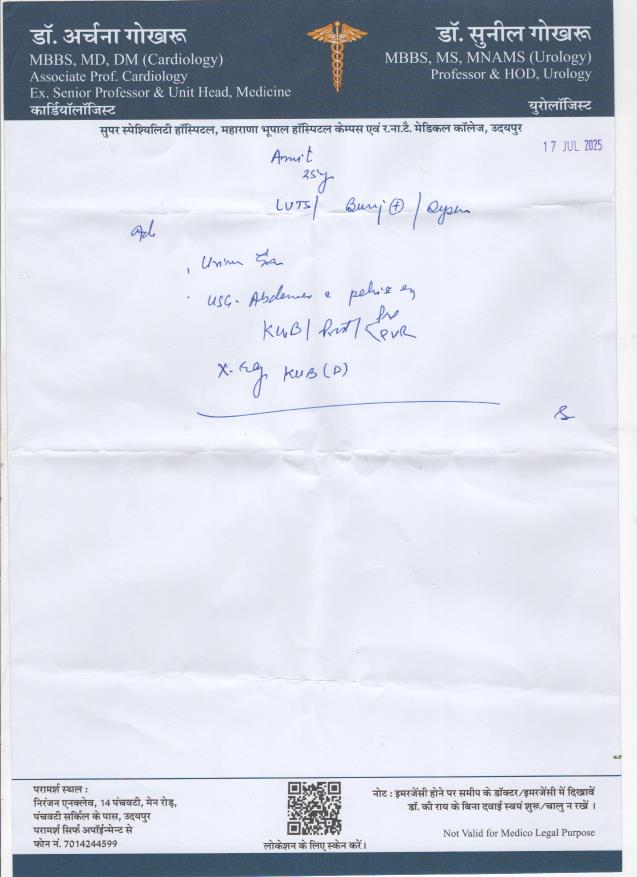 डॉ. अर्चना गोखरू
MBBS, MD, DM (Cardiology)
Associate Prof. Cardiology
Ex. Senior Professor & Unit Head, Medicine
कार्डियॉलॉजिस्ट
डॉ. सुनील गोखरू
MBBS, MS, MNAMS (Urology)
Professor & HOD, Urology
युरोलॉजिस्ट
सुपर स्पेश्यिलिटी हॉस्पिटल, महाराणा भूपाल हॉस्पिटल केम्पस एवं र.ना.टै. मेडिकल कॉलेज, उदयपुर
17 JUL 2025
Amit
25y
LUTS/ (+) /
Adv
Urine
USG. Abdomen
KUB/ Prost/ Pre
PVR
X-ray KUB (P)
परामर्श स्थल :
निरंजन एनक्लेव, 14 पंचवटी, मेन रोड़,
पंचवटी सर्किल के पास, उदयपुर
परामर्श सिर्फ अपॉईन्मेन्ट से
फोन नं. 7014244599
लोकेशन के लिए स्केन करें।
नोट : इमरजेंसी होने पर समीप के डॉक्टर/इमरजेंसी में दिखावें
डॉ. की राय के बिना दवाई स्वयं शुरू/चालु न रखें ।
Not Valid for Medico Legal Purpose